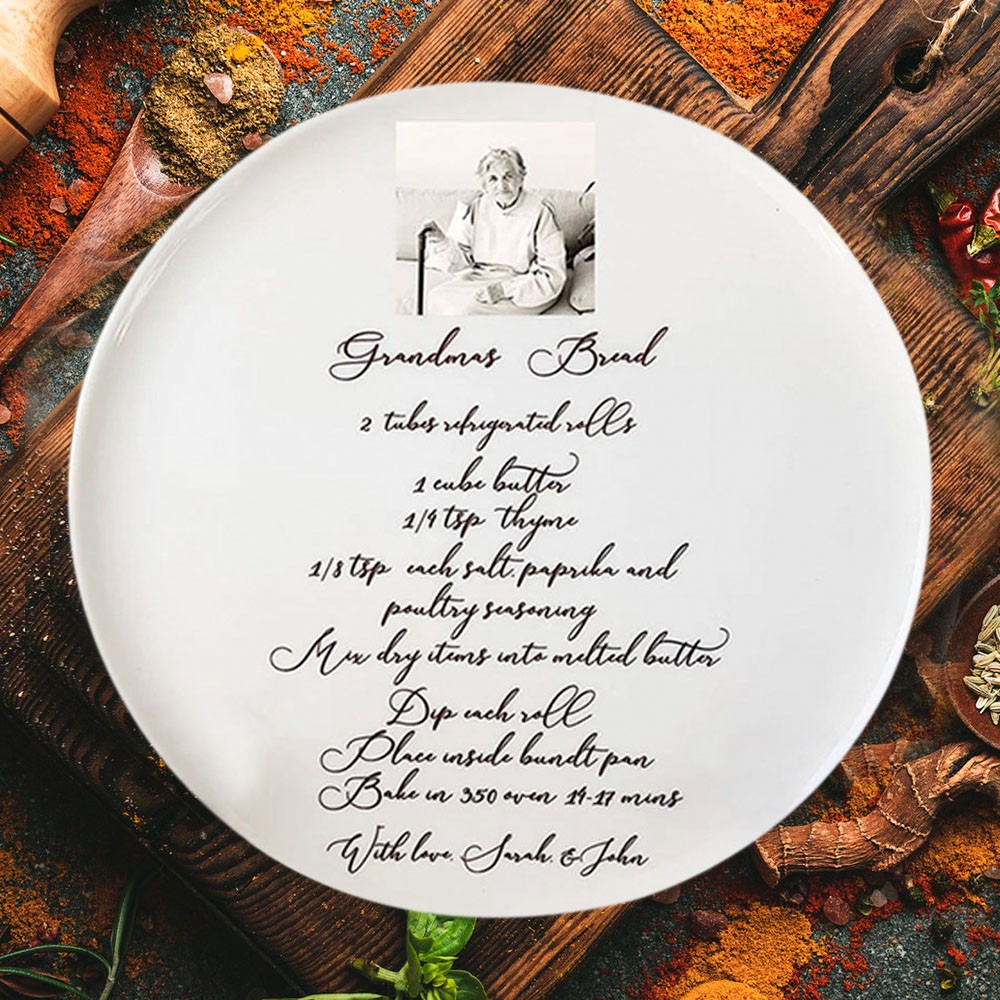 Grandmas Bread
2 tubes refrigerated rolls
1 cube butter
1/4 tsp thyme
1/8 tsp each salt, paprika and
poultry seasoning
Mix dry items into melted butter
Dip each roll
Place inside bundt pan
Bake in 350 oven 14-17 mins
With love, Sarah, & John